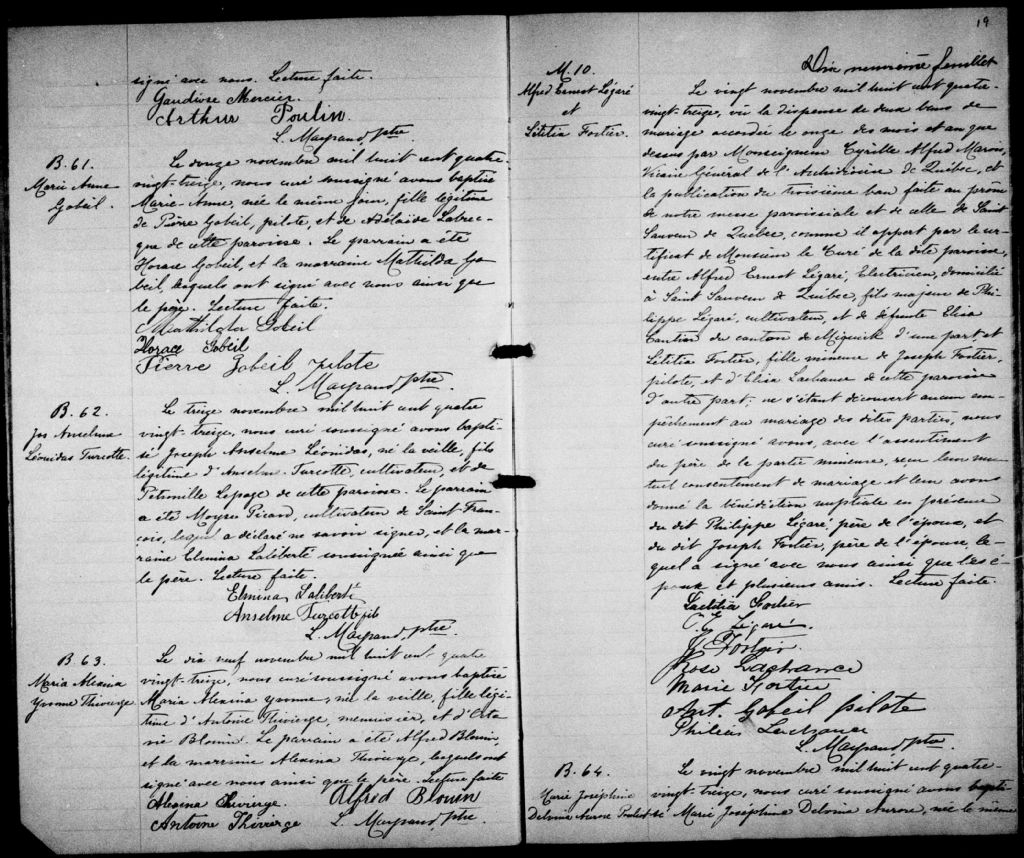 signé avec nous. Lecture faite.
Gaudiose Mercier
Arthur Poulin
L. Mayrand, ptre
B. 61.
Marie Anne
Gobeil.
Le douze novembre mil huit cent quatre-
vingt-treize, nous curé soussigné avons baptisé
Marie-Anne, née le même jour, fille légitime
de Pierre Gobeil, pilote, et de Adélaïde Labrec-
que de cette paroisse. Le parrain a été
Horace Gobeil, et la marraine Mathilda Go
beil, lesquels ont signé avec nous ainsi que
le père. Lecture faite.
Mathilda Gobeil
Horace Gobeil
Pierre Gobeil pilote
L. Mayrand ptre
B. 62.
Jos Anselme
Léonidas Turcotte
Le treize novembre mil huit cent quatre
vingt-treize, nous curé soussigné avons bapti-
sé Joseph Anselme Léonidas, né la veille, fils
légitime d'Anselme Turcotte, cultivateur, et de
Pétronille Lepage de cette paroisse. Le parrain
a été Moyse Picard, cultivateur de Saint-Fran-
çois, lequel a déclaré ne savoir signer, et la mar-
raine Elmina Laliberté soussignée ainsi que
le père. Lecture faite.
Elmina Laliberté
Anselme Turcotte fils
L. Mayrand, ptre
B. 63.
Maria Alexina
Yvonne Thivierge
Le dix neuf novembre mil huit cent quatre
vingt-treize, nous curé soussigné avons baptisé
Maria Alexina Yvonne, née la veille, fille légi-
time d'Antoine Thivierge, menuisier, et d'Octa
vie Blouin. Le parrain a été Alfred Blouin,
et la marraine Alexina Thivierge, lesquels ont
signé avec nous ainsi que le père. Lecture faite
Alexina Thivierge. Alfred Blouin
Antoine Thivierge L. Mayrand, ptre
19
Dix neuvième feuillet
M. 10.
Alfred Ernest Légaré
et
Létitia Fortier.
Le vingt novembre mil huit cent quatre-
vingt-treize, vu la dispense de deux bans de
mariage accordée le onze des mois et an que
dessus par Monseigneur Cyrille Alfred Marois,
Vicaire Général de l'Archidiocèse de Québec, et
la publication du troisième ban faite au prône
de notre messe paroissiale et de celle de Saint
Sauveur de Québec, comme il appert par le cer-
tificat de Monsieur le Curé de la dite paroisse,
entre Alfred Ernest Légaré, Electricien, domicilié
à Saint Sauveur de Québec, fils majeur de Phi-
lippe Légaré, cultivateur, et de défunte Eliza
du canton de d'une part, et
Létitia Fortier, fille mineure de Joseph Fortier,
pilote, et d'Eliza Lachance de cette paroisse
d'autre part; ne s'étant découvert aucun em-
pêchement au mariage des dites parties, nous
curé soussigné avons, avec l'assentiment
du père de la partie mineure, reçu leur mu-
tuel consentement de mariage et leur avons
donné la bénédiction nuptiale en présence
du dit Philippe Légaré, père de l'époux, et
du dit Joseph Fortier, père de l'épouse, le-
quel a signé avec nous ainsi que les é-
poux et plusieurs amis. Lecture faite.
Laetitia Fortier
Légaré.
J. Fortier.
Rose Lachance
Marie Fortier
Ant. Gobeil pilote
Philéas Lachance
L. Mayrand ptre.
B. 64.
Marie Joséphine
Delvina Aurore
Le vingt novembre mil huit cent quatre-
vingt-treize, nous curé soussigné avons bapti
sé Marie Joséphine Delvina Aurore, née le même